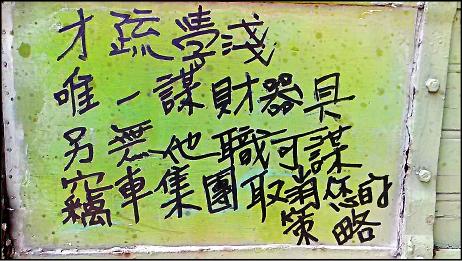 才疏學淺
唯一謀財器具
另無他職可謀
竊車集團取消您的
策略